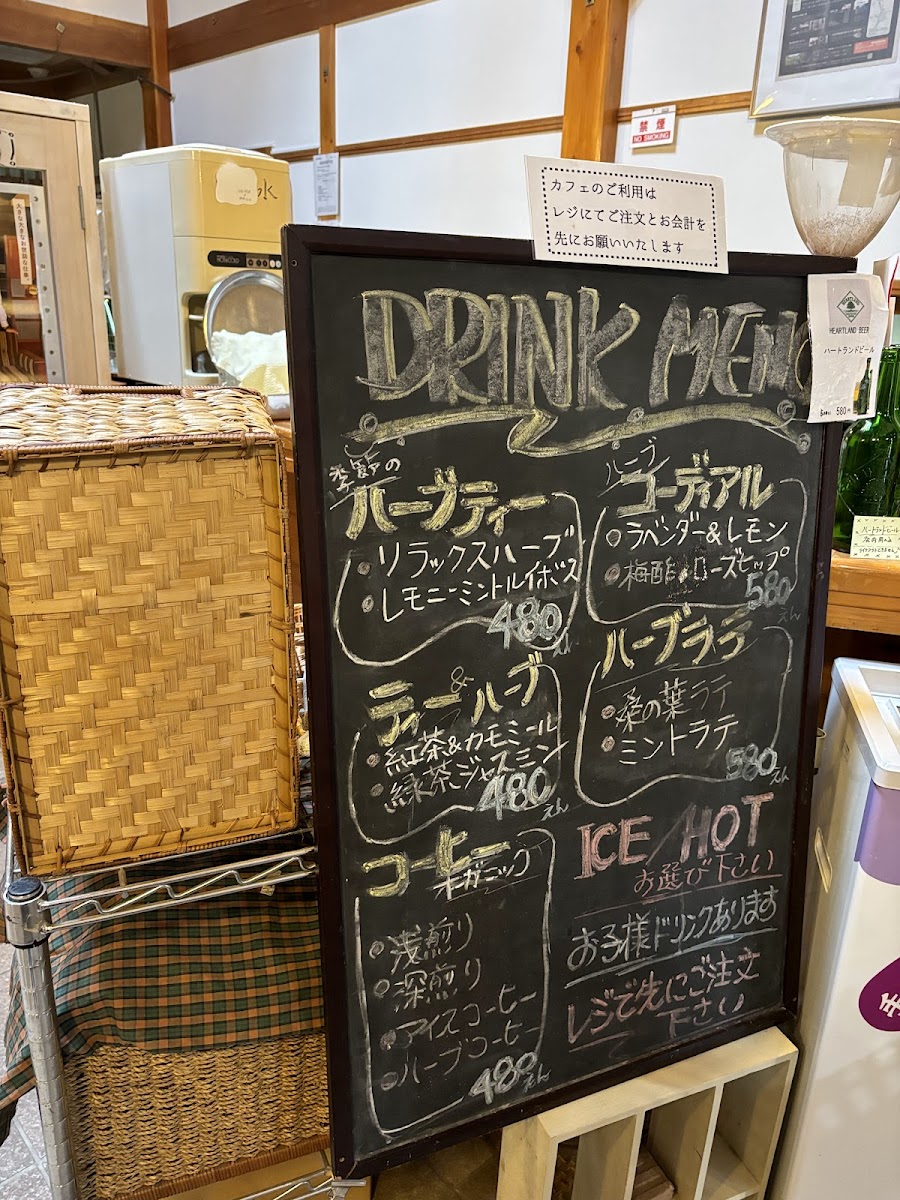 禁煙
NO SMOKING
カフェのご利用は
レジにてご注文とお会計を
先にお願いいたします
HEARTLAND BEER
ハートランドビール
580
DRINK MENU
季節の
ハーブティー
・リラックスハーブ
・レモニーミントルイボス
480えん
ハーブ
コーディアル
・ラベンダー&レモン
・梅酢 ローズヒップ
580えん
ティー&ハーブ
・紅茶&カモミール
・緑茶ジャスミン
480えん
ハーブラテ
・桑の葉ラテ
・ミントラテ
580えん
コーヒー
オーガニック
・浅煎り
・深煎り
・アイスコーヒー
・ハーブコーヒー
480えん
ICE/HOT
お選び下さい
お子様ドリンクあります
レジで先にご注文
下さい